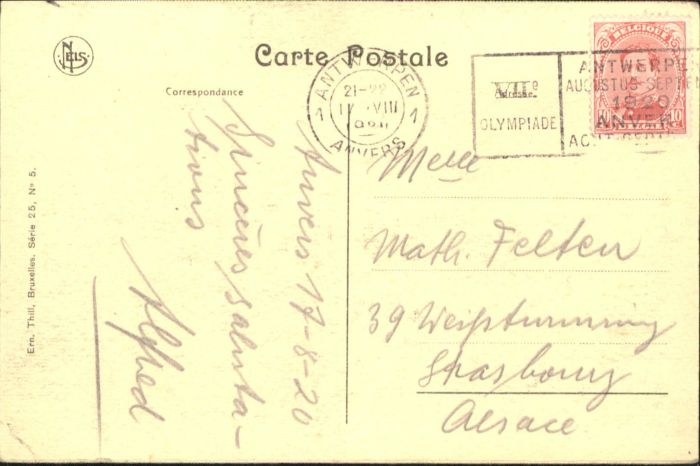 NELS
Carte Postale
Correspondance
Adresse
BELGIQUE
10
ANTWERPEN
1 21-22 1
17 VIII
1920
ANVERS
VIIe
OLYMPIADE
ANTWERPE
AUGUSTUS-SEPTEM
1920
ANVER
AOUT-SEPTEM
Anvers 17-8-20
Sincères saluta-
tions
Alfred
Math. Felten
39 Weißturmring
Strasbourg
Alsace
Ern. Thill, Bruxelles. Série 25, No 5.